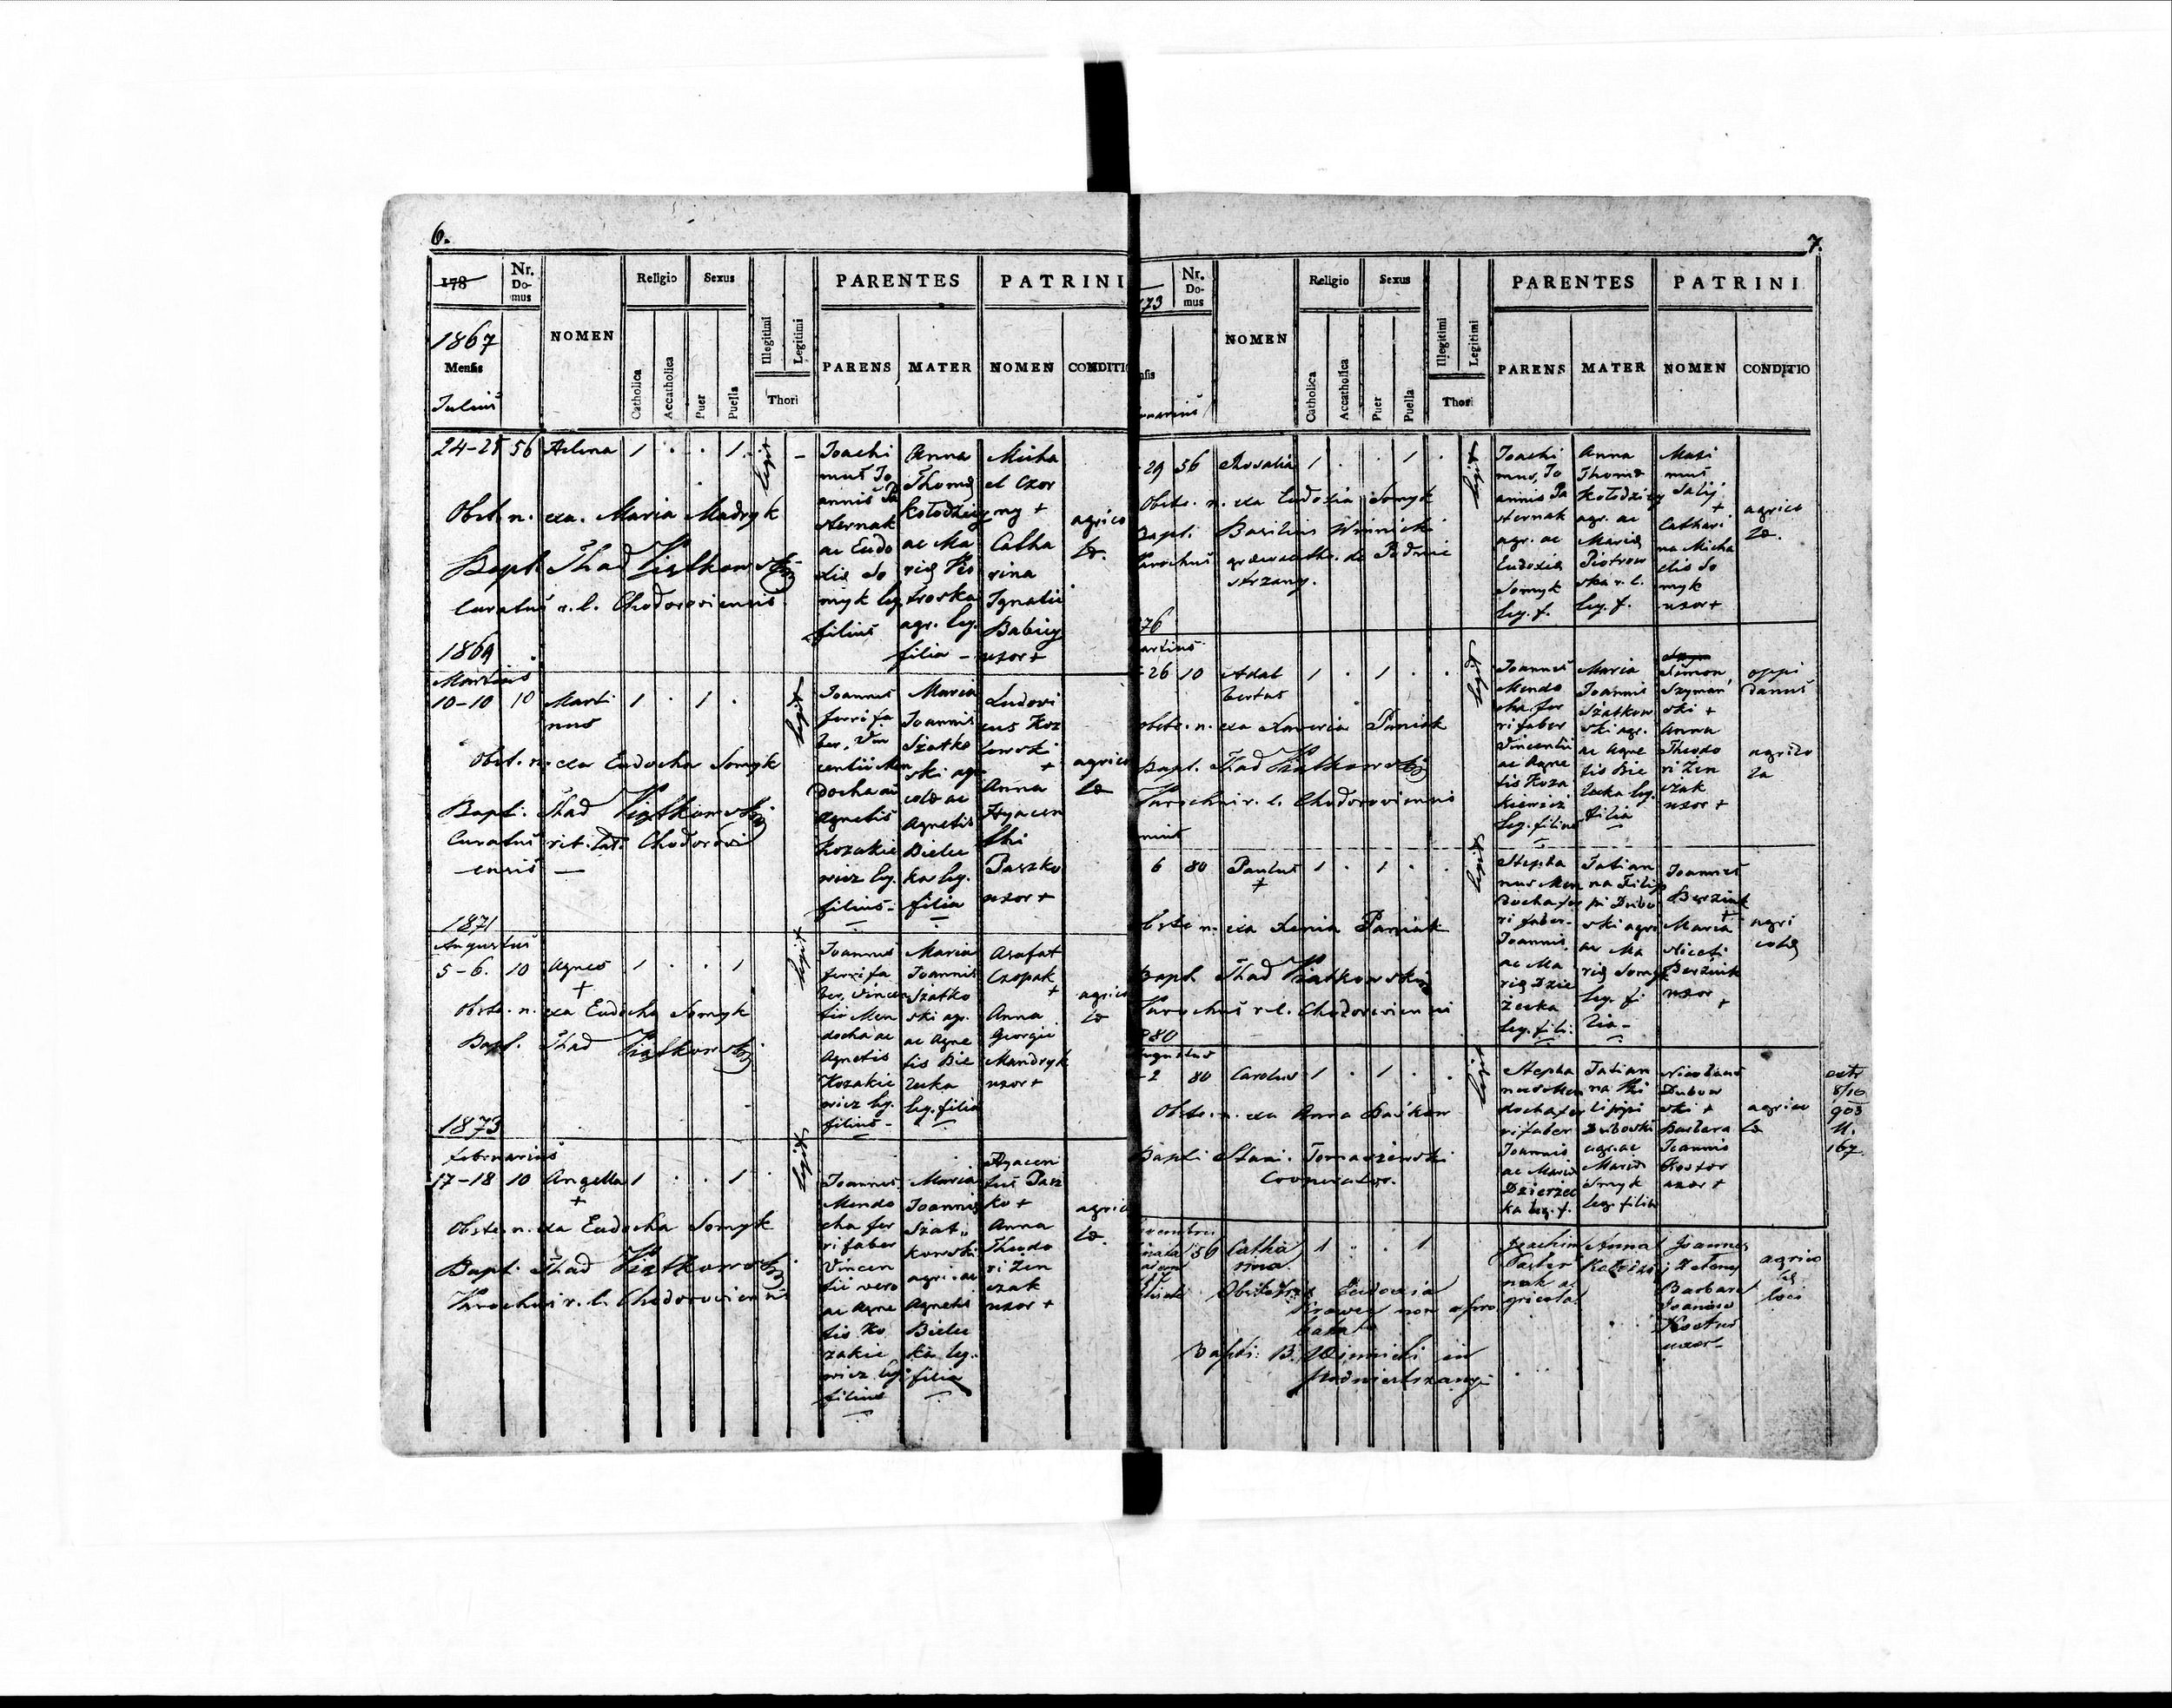 6.
178
Nr. Do- mus
NOMEN
Religio
Sexus
PARENTES
PATRINI
1867
Mensis
Julius
Catholica
Accatholica
Puer
Puella
Illegitimi
Legitimi
Thori
PARENS
MATER
NOMEN
CONDITI
24-25 56 Helena 1 . . 1 legit -
Joachi
mus Jo
annis Pa
sternak
ac Eudo
xiæ So
myk leg.
filius
Anna
Thomæ
Kołodziey
ac Ma
riæ Pio
trowska
agr. leg.
filia -
Micha
el Czor
ny +
Catha
rina
Ignatii
Babicz
uxor +
agrico
læ.
Obst. n. exa. Maria Madryk
Bapt. Thad Kiałkowski
Curatus r. l. Chodoroviensis
1869
Martius
10-10 10 Marti
nus
1 . 1 . legit
Joannes
ferri fa
ber, Vin
centii Men
docha ac
Agnetis
Kozakie
wicz leg.
filius -
Maria
Joannis
Szatko
ski agr
colæ ac
Agnetis
Bielec
ka leg.
filia
Ludovi
cus Koz
łowski
+
Anna
Hyacen
thi
Paszko
uxor +
agrico
læ
Obst. n. exa Eudocha Somyk
Bapt. Thad Kiałkowski
Curatus rit. lat. Chodorovi
ensis —
1871
Augustus
5-6. 10 Agnes 1 . . 1 legit
+
Joannes
ferri fa
ber, Vincen
tii Men
docha ac
Agnetis
Kozakie
wicz leg.
filius -
Maria
Joannis
Szatko
ski agr.
ac Agne
tis Bie
lecka
leg. filia
Asafat
Czopak
+
Anna
Georgii
Mandryk
uxor +
agrico
læ
Obste. n. exa Eudocha Somyk
Bapt. Thad Kiałkowski
1873
Februarius
17-18 10 Angella 1 . . 1 legit
+
Joannes
Mendo
cha fer
ri faber
Vincen
tii vero
ac Agne
tis Ko
zakie
wicz leg.
filius
Maria
Joannis
Szat
kowski
agri. ac
Agnetis
Bielec
ka leg.
filia
Hyacen
tus Pasz
ko +
Anna
Theodo
ri Zen
czak
uxor +
agrico
læ.
Obste. n. exa Eudocha Somyk
Bapt. Thad Kiałkowski
Parochus r. l. Chodoroviensis
7.
73
Nr. Do- mus
NOMEN
Religio
Sexus
PARENTES
PATRINI
Catholica
Accatholica
Puer
Puella
Illegitimi
Legitimi
Thori
PARENS
MATER
NOMEN
CONDITIO
29 56 Rosalia 1 . . 1 . legit
Joachi
mus, Jo
annis Pa
sternak
agr. ac
Eudoxiæ
Somyk
leg. f.
Anna
Thomæ
Kołodziey
agr. ac
Mariæ
Piotrow
ska r. l.
leg. f.
Maxi
mus
Salij
+
Cathari
na Micha
elis So
myk
uxor +
agrico
læ.
Obste. n. exa Eudoxia Somyk
Bapt. Basilius Winnicki
Parochus
strzany.
76
26 10 Adal
bertus
1 . 1 . . legit
Joannes
Mendo
cha fer
ri faber
Vincentii
ac Agne
tis Koza
kiewicz
leg. filius
Maria
Joannis
Szatkow
ski agr.
ac Agne
tis Bie
lecka leg.
filia
Simon
Szyman
ski +
Anna
Theodo
ri Zen
czak
uxor +
oppi
danus
agrico
la
Obste. n. exa Xaveria Paniak
Bapt. Thad Kiałkowski
Parochus r. l. Chodoroviensis
6 80 Paulus 1 . 1 . . legit
+
Stepha
nus Men
docha fer
ri faber
Joannis
ac Ma
riæ Dzie
rzecka
leg. fili:
Tatian
na Filip
pi Dubo
ski agr.
ac Ma
riæ Somyk
leg. fi
lia -
Joannes
Berziuk
+
Maria
Niceti
Berziuk
uxor
+
agri
colæ
n. exa Xenia Paniak
Bapt Thad Kiałkowski
Parochus r. l. Chodoroviensis
80
Augustus
-2 80 Carolus 1 . 1 . . legit
Stepha
nus Men
docha fer
ri faber
Joannis
ac Mariæ
Dzierzec
ka leg. f.
Tatian
na Phi
lippi
Dubowski
agr. ac
Mariæ
Smyk
leg. filia
Nicolaus
Dubow
ski +
Barbara
Joannis
Kostor
uxor +
agrico
læ
8/10
903
167
Obste. n. exa Anna Baskow
Bapti Stani. Tomaszewski
Cooperator.
56 Catha
rina
1 . . 1
Joachim
Paster
nak a
gricola
Anna
Kołodziej
Joannes
Barbara
Joannis
Kostur
uxor
agrico
læ
loci
Obstetrix Eudoxia
non appro
bata
Bapti: B. Winnicki in
Podniestrzany